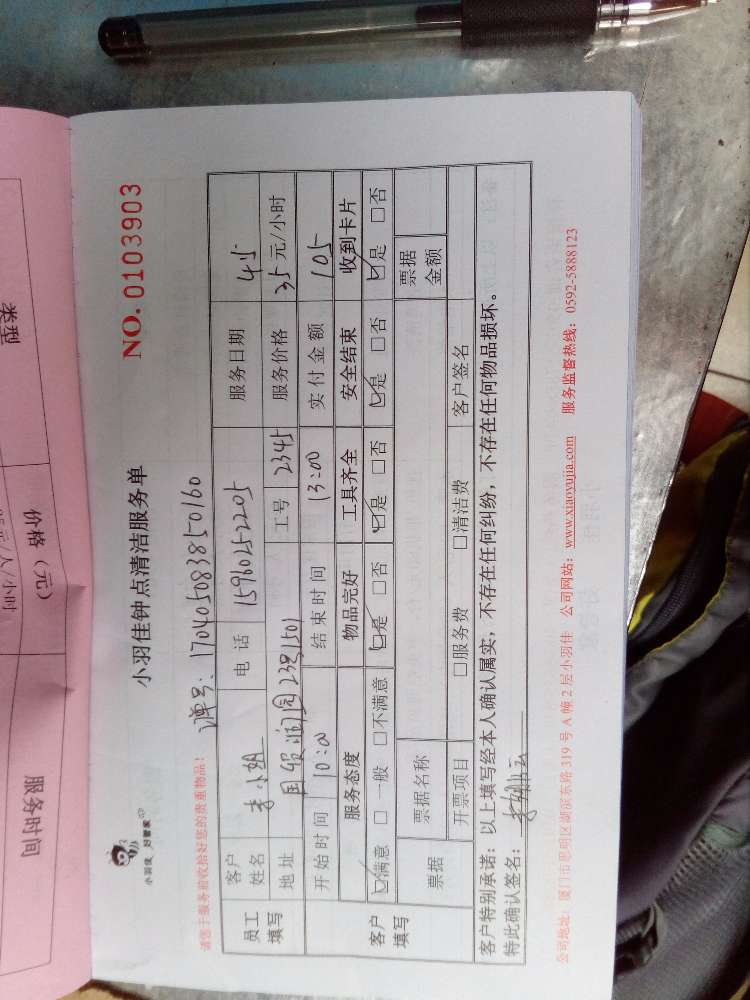 小羽佳 好管家
小羽佳钟点清洁服务单
NO. 0103903
请您于服务前收拾好您的贵重物品!
单号: 170405083850160
员工填写
客户姓名 李小姐 电话 15960252205 服务日期 4.5
地址 23号1501 工号 2345 服务价格 35 元/小时
开始时间 10:00 结束时间 13:00 实付金额 105
客户填写
服务态度 物品完好 工具齐全 安全结束 收到卡片
☑满意 □一般 □不满意 ☑是 □否 ☑是 □否 ☑是 □否 ☑是 □否
票据 票据名称 票据金额
开票项目 □服务费 □清洁费 客户签名
客户特别承诺:以上填写经本人确认属实,不存在任何纠纷,不存在任何物品损坏。
特此确认签名:
公司地址:厦门市思明区湖滨东路 319 号 A 幢 2 层小羽佳 公司网站:www.xiaoyujia.com 服务监督热线:0592-5888123
类型
价格(元)
元/人/小时
服务时间